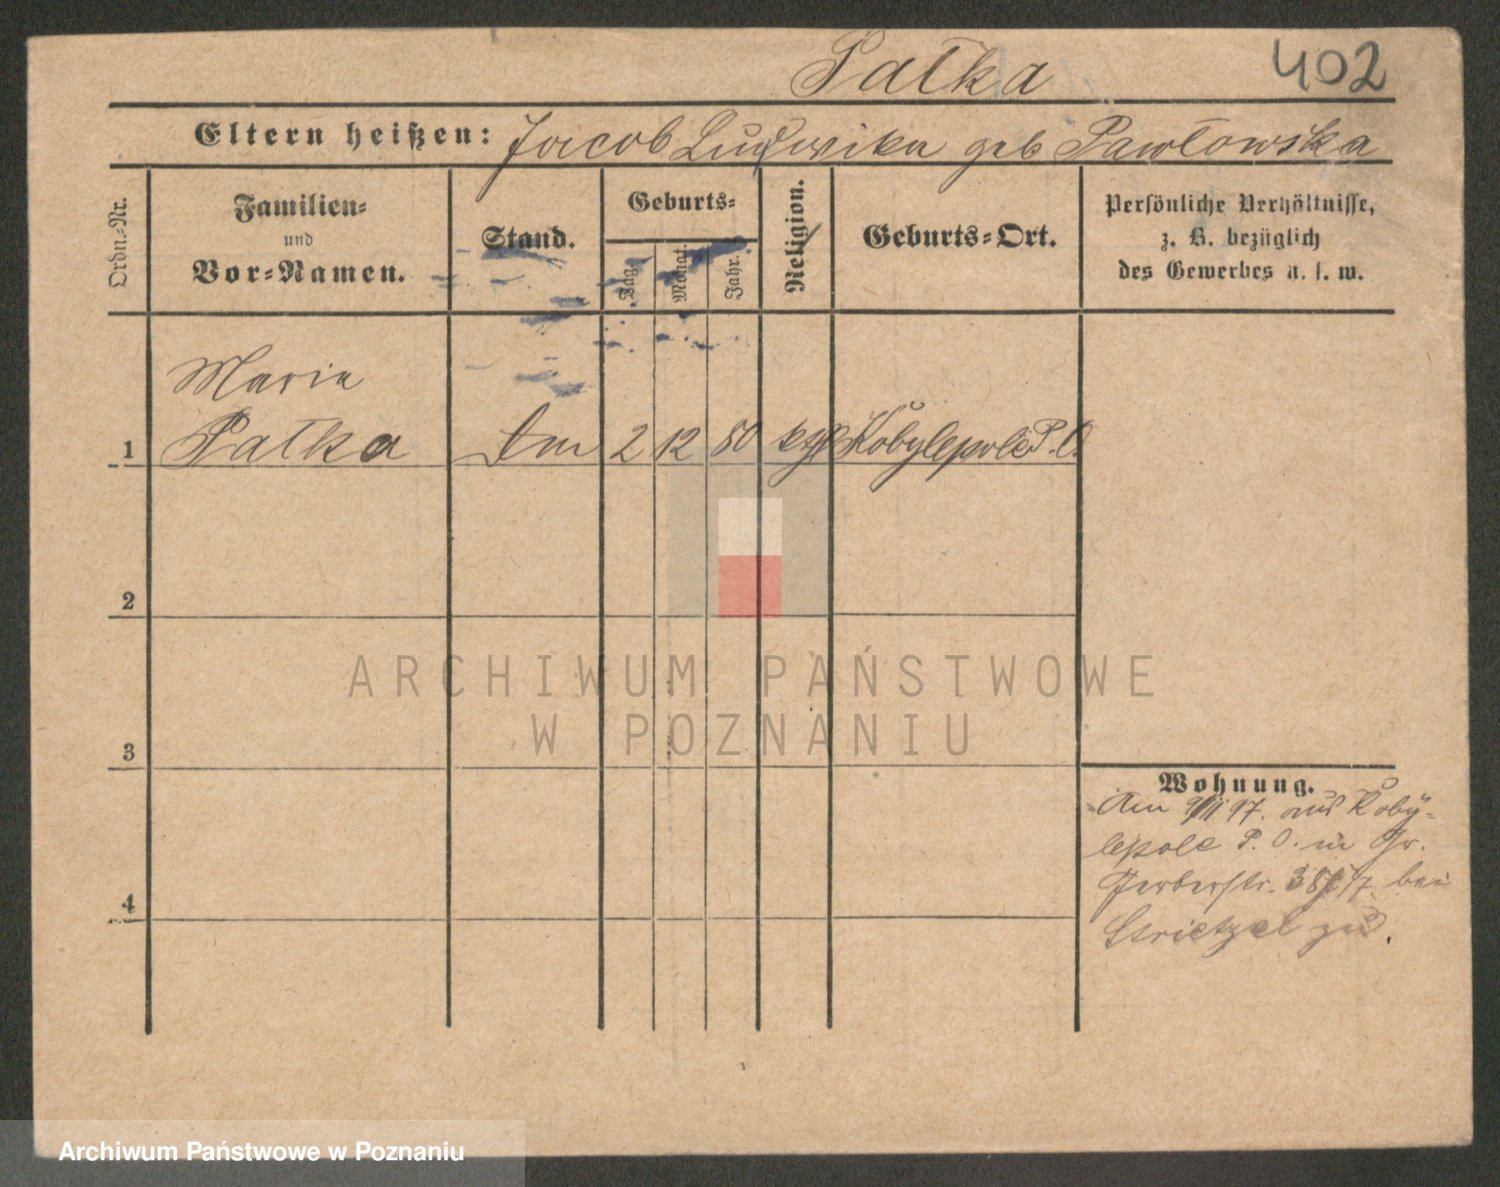 Pałka 402
Eltern heißen: Jacob Ludwika geb Pawłowska
Ordn.=Nr.
Familien=
und
Vor=Namen.
Stand.
Geburts=
Tag.
Monat.
Jahr.
Religion.
Geburts=Ort.
Persönliche Verhältnisse,
z. B. bezüglich
des Gewerbes u. s. w.
Maria
1 Pałka 2 12 80 ktl Kobylepole P. O.
2
3
4
ARCHIWUM PAŃSTWOWE
W POZNANIU
Wohnung.
Am 97. aus Koby=
lepole P. O. in Gr.
Gerberstr. 38 bei
Strietzel zu.
Archiwum Państwowe w Poznaniu